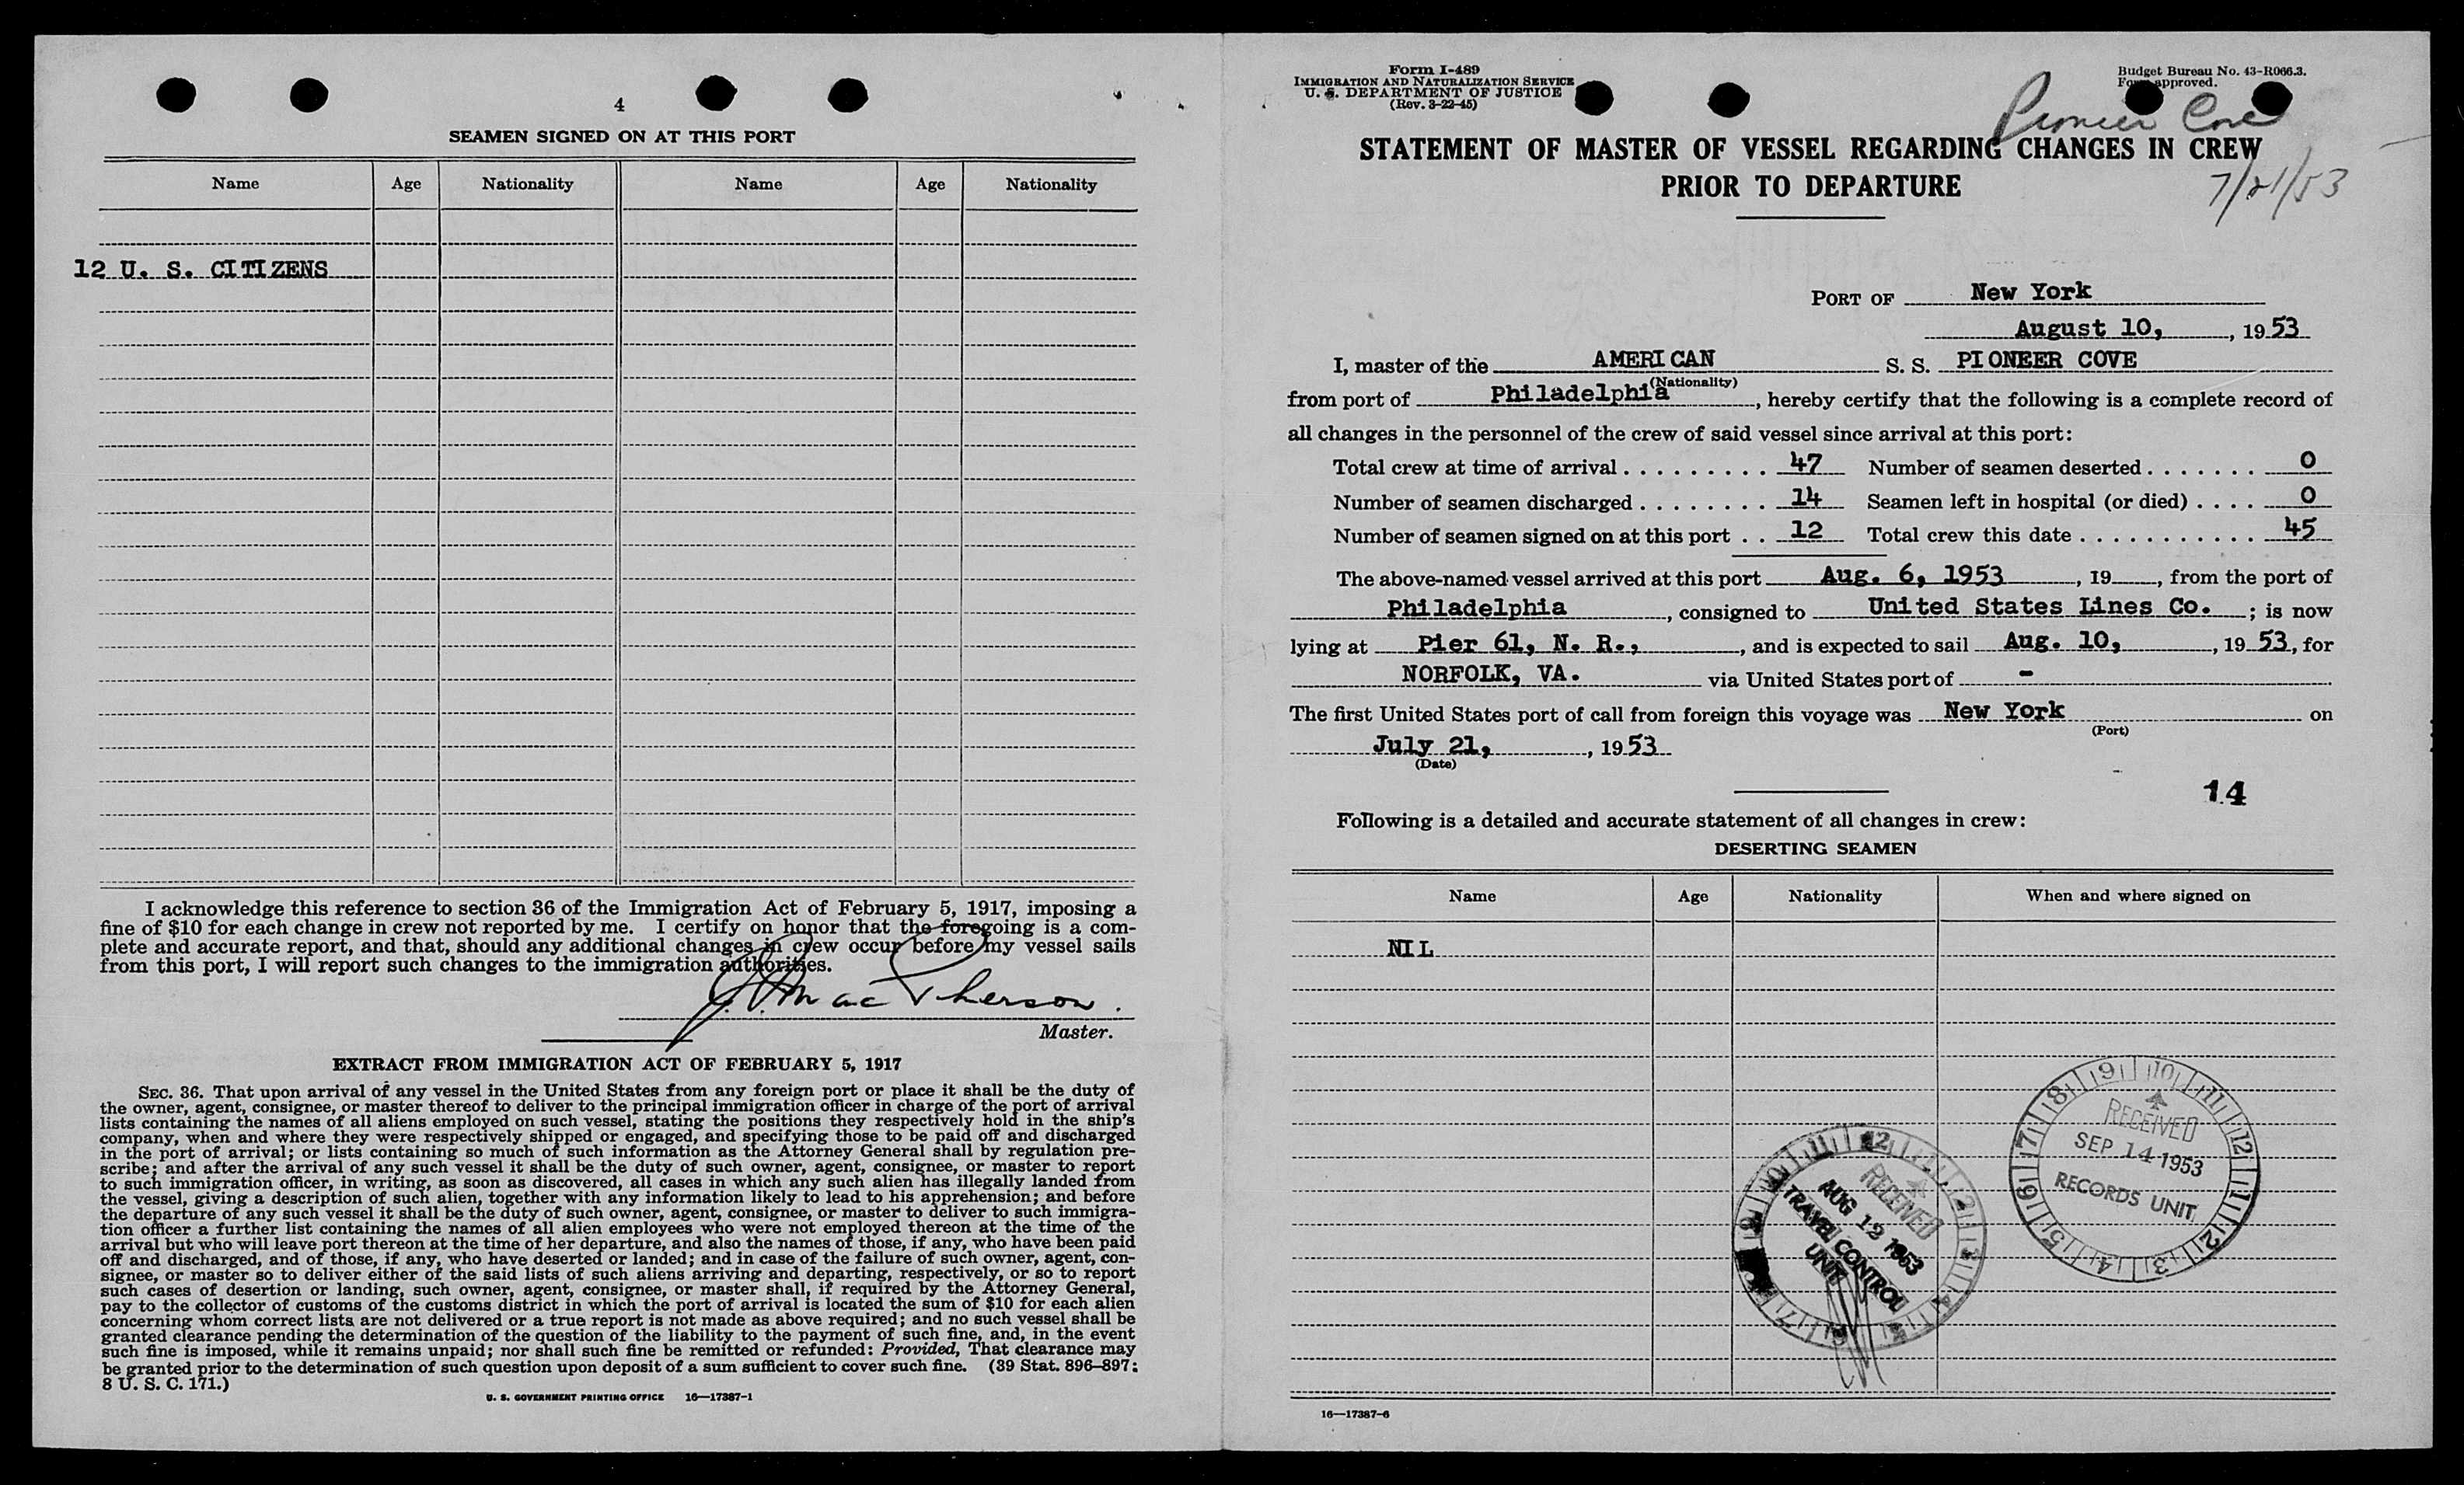 4
SEAMEN SIGNED ON AT THIS PORT
Name Age Nationality Name Age Nationality
12 U. S. CITIZENS
I acknowledge this reference to section 36 of the Immigration Act of February 5, 1917, imposing a
fine of $10 for each change in crew not reported by me. I certify on honor that the foregoing is a com-
plete and accurate report, and that, should any additional changes in crew occur before my vessel sails
from this port, I will report such changes to the immigration authorities.
J. V. MacPherson.
Master.
EXTRACT FROM IMMIGRATION ACT OF FEBRUARY 5, 1917
SEC. 36. That upon arrival of any vessel in the United States from any foreign port or place it shall be the duty of
the owner, agent, consignee, or master thereof to deliver to the principal immigration officer in charge of the port of arrival
lists containing the names of all aliens employed on such vessel, stating the positions they respectively hold in the ship's
company, when and where they were respectively shipped or engaged, and specifying those to be paid off and discharged
in the port of arrival; or lists containing so much of such information as the Attorney General shall by regulation pre-
scribe; and after the arrival of any such vessel it shall be the duty of such owner, agent, consignee, or master to report
to such immigration officer, in writing, as soon as discovered, all cases in which any such alien has illegally landed from
the vessel, giving a description of such alien, together with any information likely to lead to his apprehension; and before
the departure of any such vessel it shall be the duty of such owner, agent, consignee, or master to deliver to such immigra-
tion officer a further list containing the names of all alien employees who were not employed thereon at the time of the
arrival but who will leave port thereon at the time of her departure, and also the names of those, if any, who have been paid
off and discharged, and of those, if any, who have deserted or landed; and in case of the failure of such owner, agent, con-
signee, or master so to deliver either of the said lists of such aliens arriving and departing, respectively, or so to report
such cases of desertion or landing, such owner, agent, consignee, or master shall, if required by the Attorney General,
pay to the collector of customs of the customs district in which the port of arrival is located the sum of $10 for each alien
concerning whom correct lists are not delivered or a true report is not made as above required; and no such vessel shall be
granted clearance pending the determination of the question of the liability to the payment of such fine, and, in the event
such fine is imposed, while it remains unpaid; nor shall such fine be remitted or refunded: Provided, That clearance may
be granted prior to the determination of such question upon deposit of a sum sufficient to cover such fine. (39 Stat. 896–897;
8 U. S. C. 171.)
U. S. GOVERNMENT PRINTING OFFICE 16—17387-1
Form I-489
IMMIGRATION AND NATURALIZATION SERVICE
U. S. DEPARTMENT OF JUSTICE
(Rev. 3-22-45)
Budget Bureau No. 43-R066.3.
Form approved.
Pioneer Cove
STATEMENT OF MASTER OF VESSEL REGARDING CHANGES IN CREW
PRIOR TO DEPARTURE
7/21/53
PORT OF New York
August 10, , 19 53
I, master of the AMERICAN S. S. PIONEER COVE
(Nationality)
from port of Philadelphia, hereby certify that the following is a complete record of
all changes in the personnel of the crew of said vessel since arrival at this port:
Total crew at time of arrival . . . . . . . . . 47 Number of seamen deserted . . . . . . . 0
Number of seamen discharged . . . . . . . . 14 Seamen left in hospital (or died) . . . . 0
Number of seamen signed on at this port . . 12 Total crew this date . . . . . . . . . . . 45
The above-named vessel arrived at this port Aug. 6, 1953, 19 , from the port of
Philadelphia, consigned to United States Lines Co. ; is now
lying at Pier 61, N. R., , and is expected to sail Aug. 10, , 19 53, for
NORFOLK, VA. via United States port of -
The first United States port of call from foreign this voyage was New York on
(Port)
July 21, , 19 53
(Date)
14
Following is a detailed and accurate statement of all changes in crew:
DESERTING SEAMEN
Name Age Nationality When and where signed on
NIL
RECEIVED
AUG 12 1953
TRAVEL CONTROL
UNIT
RECEIVED
SEP 14 1953
RECORDS UNIT
16—17387-6